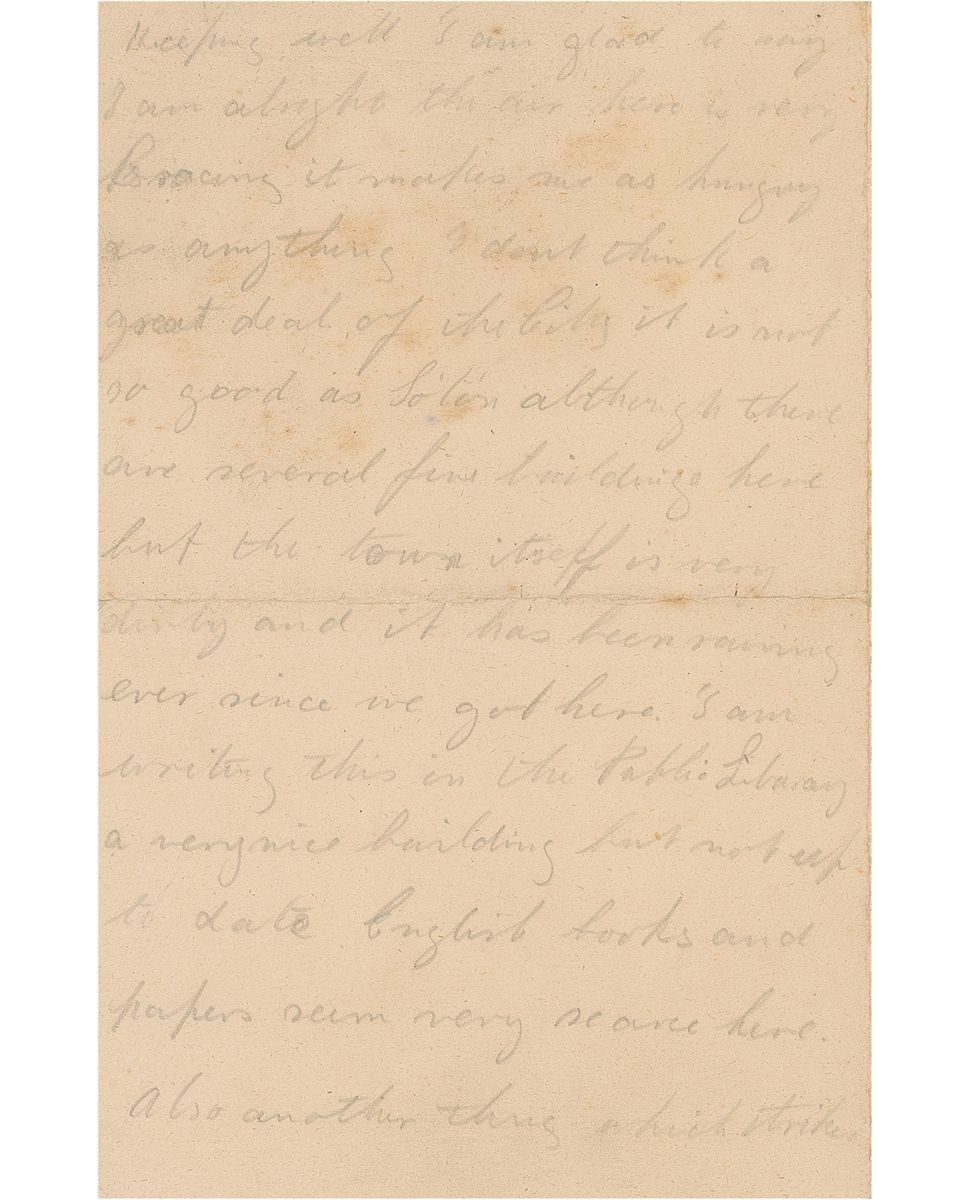 Keeping well I am glad to say
I am alright the air here is very
bracing it makes me as hungry
as anything I dont think a
great deal of the City it is not
so good as So'ton although there
are several fine buildings here
but the town itself is very
dirty and it has been raining
ever since we got here. I am
writing this in the Public Library
a very nice building but not up
to date English books and
papers seem very scarce here.
Also another thing which strikes